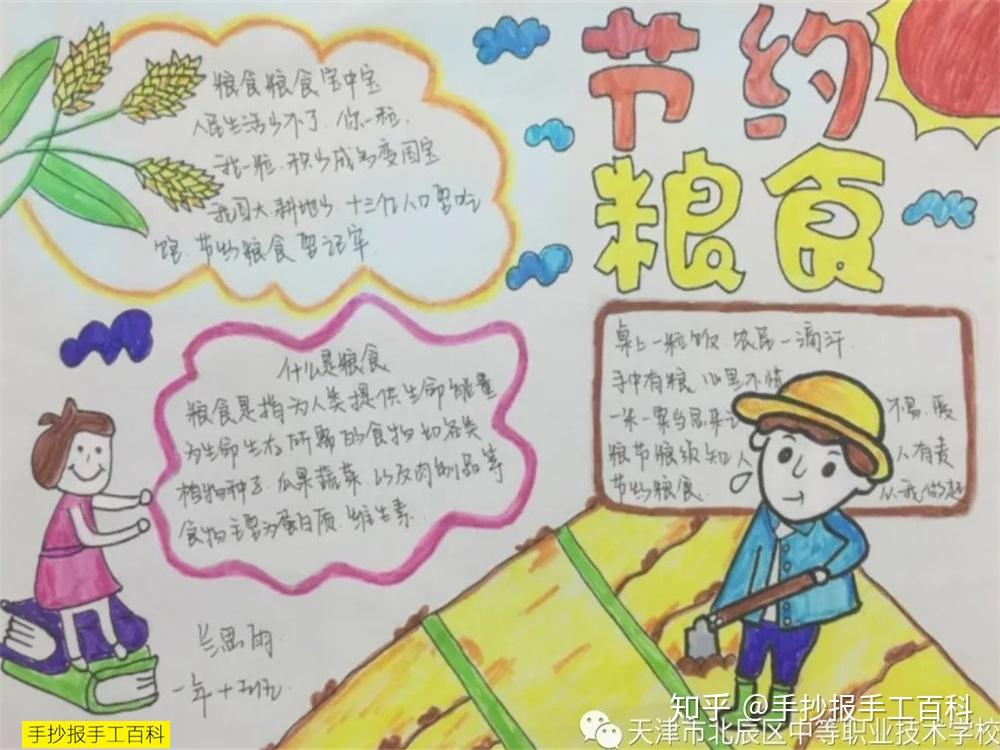 节约
粮食
粮食粮食宝中宝
人民生活少不了.你一粒,
我一粒.积少成多变国宝
我国大耕地少.十三亿人口要吃
馆.节约粮食要记牢
什么是粮食
粮食是指为人类提供生命能量
为生命生存所需的食物如各类
植物种子.瓜果蔬菜以及肉制品等
食物主要为蛋白质.维生素.
桌上一粒饭.农民一滴汗.
手中有粮.心里不慌
一米一粟当思来 不易.爱
粮节粮须知 人人有责
节约粮食. 从我做起
思雨
一年十
手抄报手工百科
知乎 @手抄报手工百科
天津市北辰区中等职业技术学校